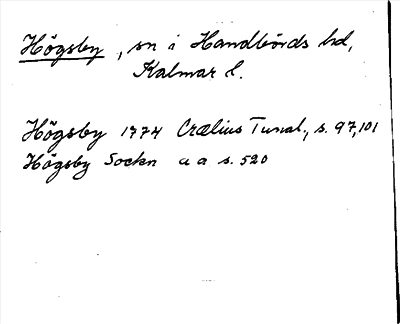 Högsby, sn i Handbörds hd,
Kalmar l.
Högsby 1774 Crælius Tunal., s. 97, 101
Högsby Sockn a a s. 520